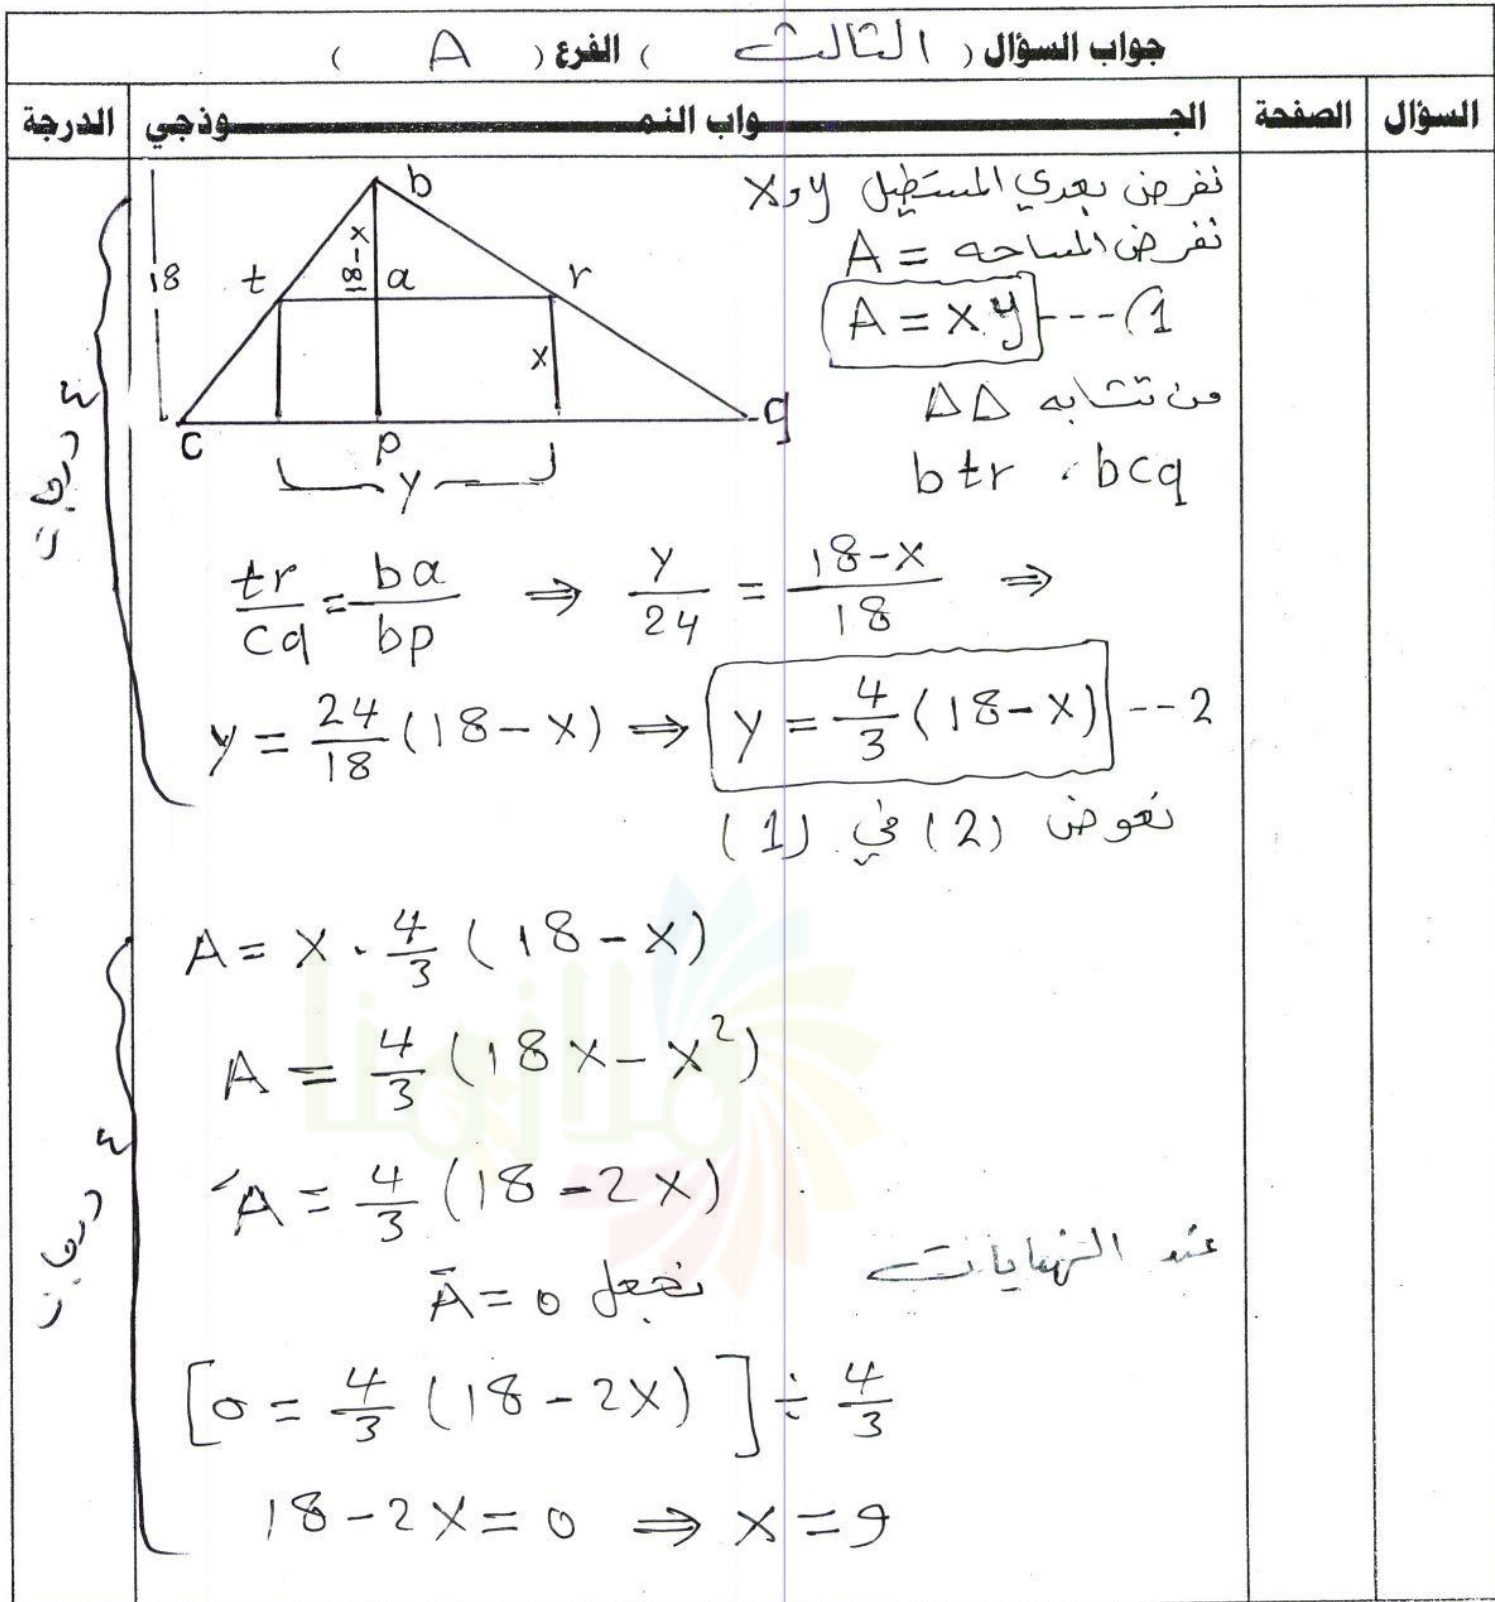 جواب السؤال ( الثالث ) الفرع ( A )
السؤال الصفحة الجـــواب النمـــوذجي الدرجة
نفرض بعدي المستطيل x و y
نفرض المساحه = A
A = x y ---(1
من تشابه ΔΔ
btr ، bcq
b
18
18-x
t a r
x
c p q
y
tr/cq = ba/bp ⇒ y/24 = (18-x)/18 ⇒
y = 24/18 (18-x) ⇒ y = 4/3 (18-x) --2
نعوض (2) في (1)
A = x . 4/3 (18-x)
A = 4/3 (18x - x²)
A' = 4/3 (18-2x)
عند النهايات
نجعل A' = 0
[0 = 4/3 (18-2x)] ÷ 4/3
18-2x = 0 ⇒ x = 9
٤ درجات
ملازمنا